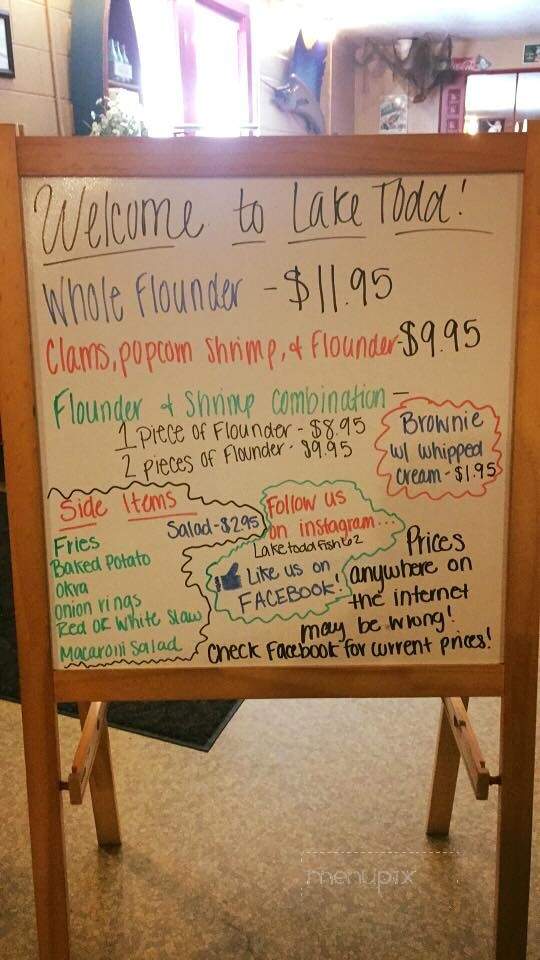 Welcome to Lake Todd!
Whole Flounder - $11.95
Clams, popcorn shrimp, & Flounder - $9.95
Flounder & Shrimp Combination -
1 piece of Flounder - $8.95
2 pieces of Flounder - $9.95
Brownie
w/ whipped
cream - $1.95
Side Items
Salad - $2.95
Fries
Baked Potato
Okra
Onion rings
Red or White Slaw
Macaroni Salad
Follow us
on instagram...
Laketoddfish62
Like us on
FACEBOOK!
Prices
anywhere on
the internet
may be wrong!
Check Facebook for current prices!
menupix